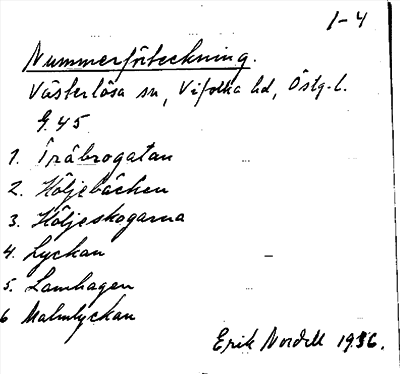 1-4
Nummerförteckning.
Västerlösa sn, Vifolka hd, Östg-l.
G. 45
1. Träbrogatan
2. Höljebäcken
3. Höljeskogarna
4. Lyckan
5. Lamhagen
6 Malmlyckan
Erik Nordell 1936.